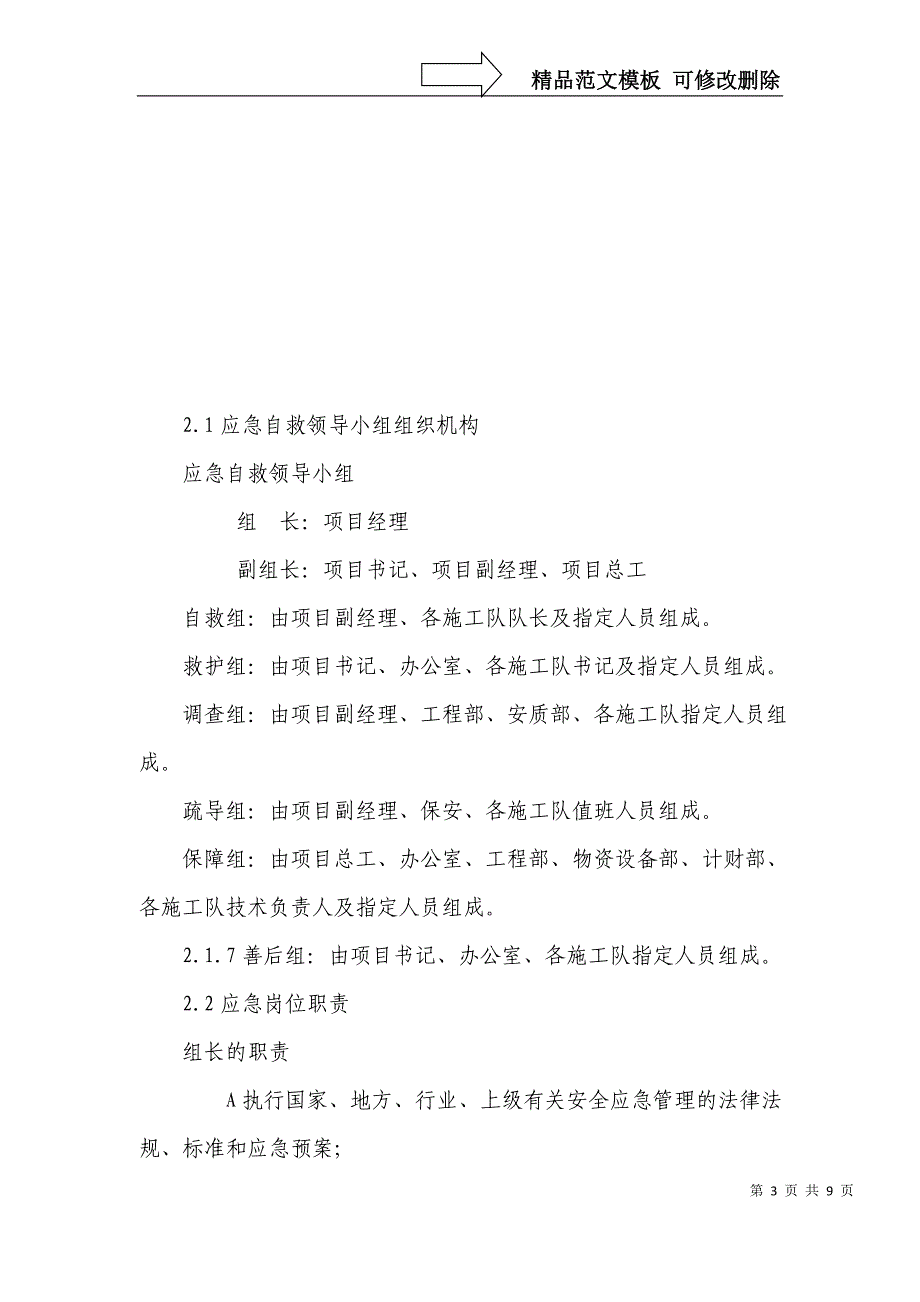 精品范文模板 可修改删除
2.1应急自救领导小组组织机构
应急自救领导小组
组　长：项目经理
副组长：项目书记、项目副经理、项目总工
自救组：由项目副经理、各施工队队长及指定人员组成。
救护组：由项目书记、办公室、各施工队书记及指定人员组成。
调查组：由项目副经理、工程部、安质部、各施工队指定人员组
成。
疏导组：由项目副经理、保安、各施工队值班人员组成。
保障组：由项目总工、办公室、工程部、物资设备部、计财部、
各施工队技术负责人及指定人员组成。
2.1.7善后组：由项目书记、办公室、各施工队指定人员组成。
2.2应急岗位职责
组长的职责
A执行国家、地方、行业、上级有关安全应急管理的法律法
规、标准和应急预案；
第 3 页 共 9 页